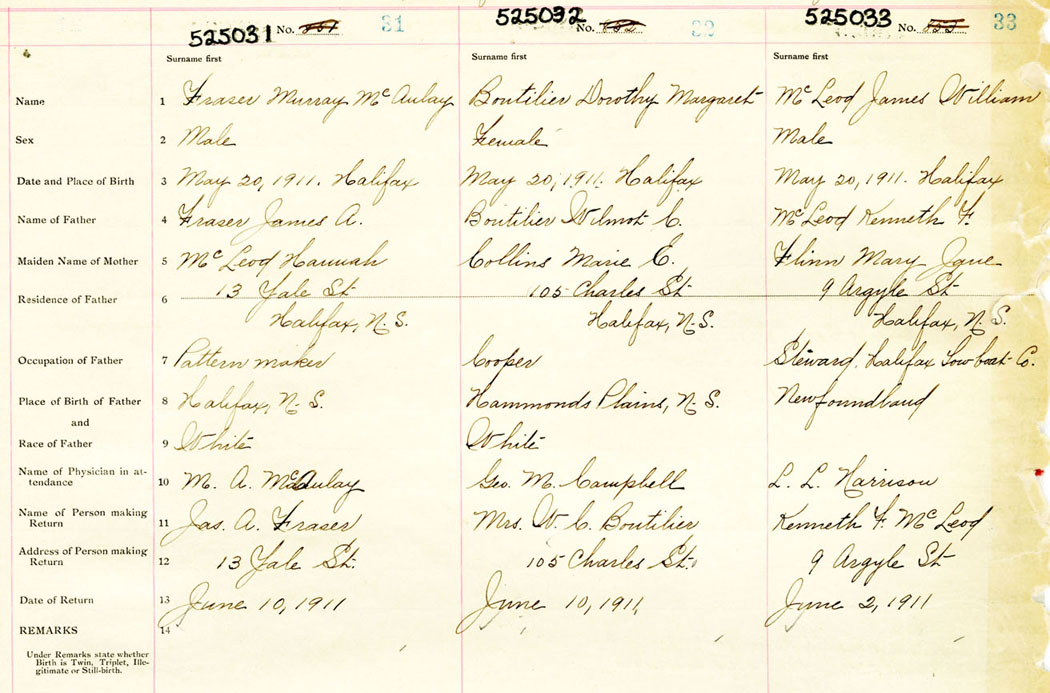 525031 No. 31 525032 No. 32 525033 No. 33
Surname first Surname first Surname first
Name 1 Fraser Murray McAulay Boutilier Dorothy Margaret McLeod James William
Sex 2 Male Female Male
Date and Place of Birth 3 May 20, 1911. Halifax May 20, 1911. Halifax May 20, 1911. Halifax
Name of Father 4 Fraser James A. Boutilier Wilmot C. McLeod Kenneth F.
Maiden Name of Mother 5 McLeod Hannah Collins Marie E. Flinn Mary Jane
Residence of Father 6 13 Yale St 105 Charles St 9 Argyle St
Halifax, N.S. Halifax, N.S. Halifax, N.S.
Occupation of Father 7 Pattern maker Cooper Steward, Halifax Tow boat Co.
Place of Birth of Father 8 Halifax, N.S. Hammonds Plains, N.S. Newfoundland
and
Race of Father 9 White White
Name of Physician in at-
tendance 10 M. A. McAulay Geo. M. Campbell L. L. Harrison
Name of Person making
Return 11 Jas. A. Fraser Mrs. W. C. Boutilier Kenneth F. McLeod
Address of Person making
Return 12 13 Yale St. 105 Charles St. 9 Argyle St
Date of Return 13 June 10, 1911 June 10, 1911 June 2, 1911
REMARKS 14
Under Remarks state whether
Birth is Twin, Triplet, Ille-
gitimate or Still-birth.